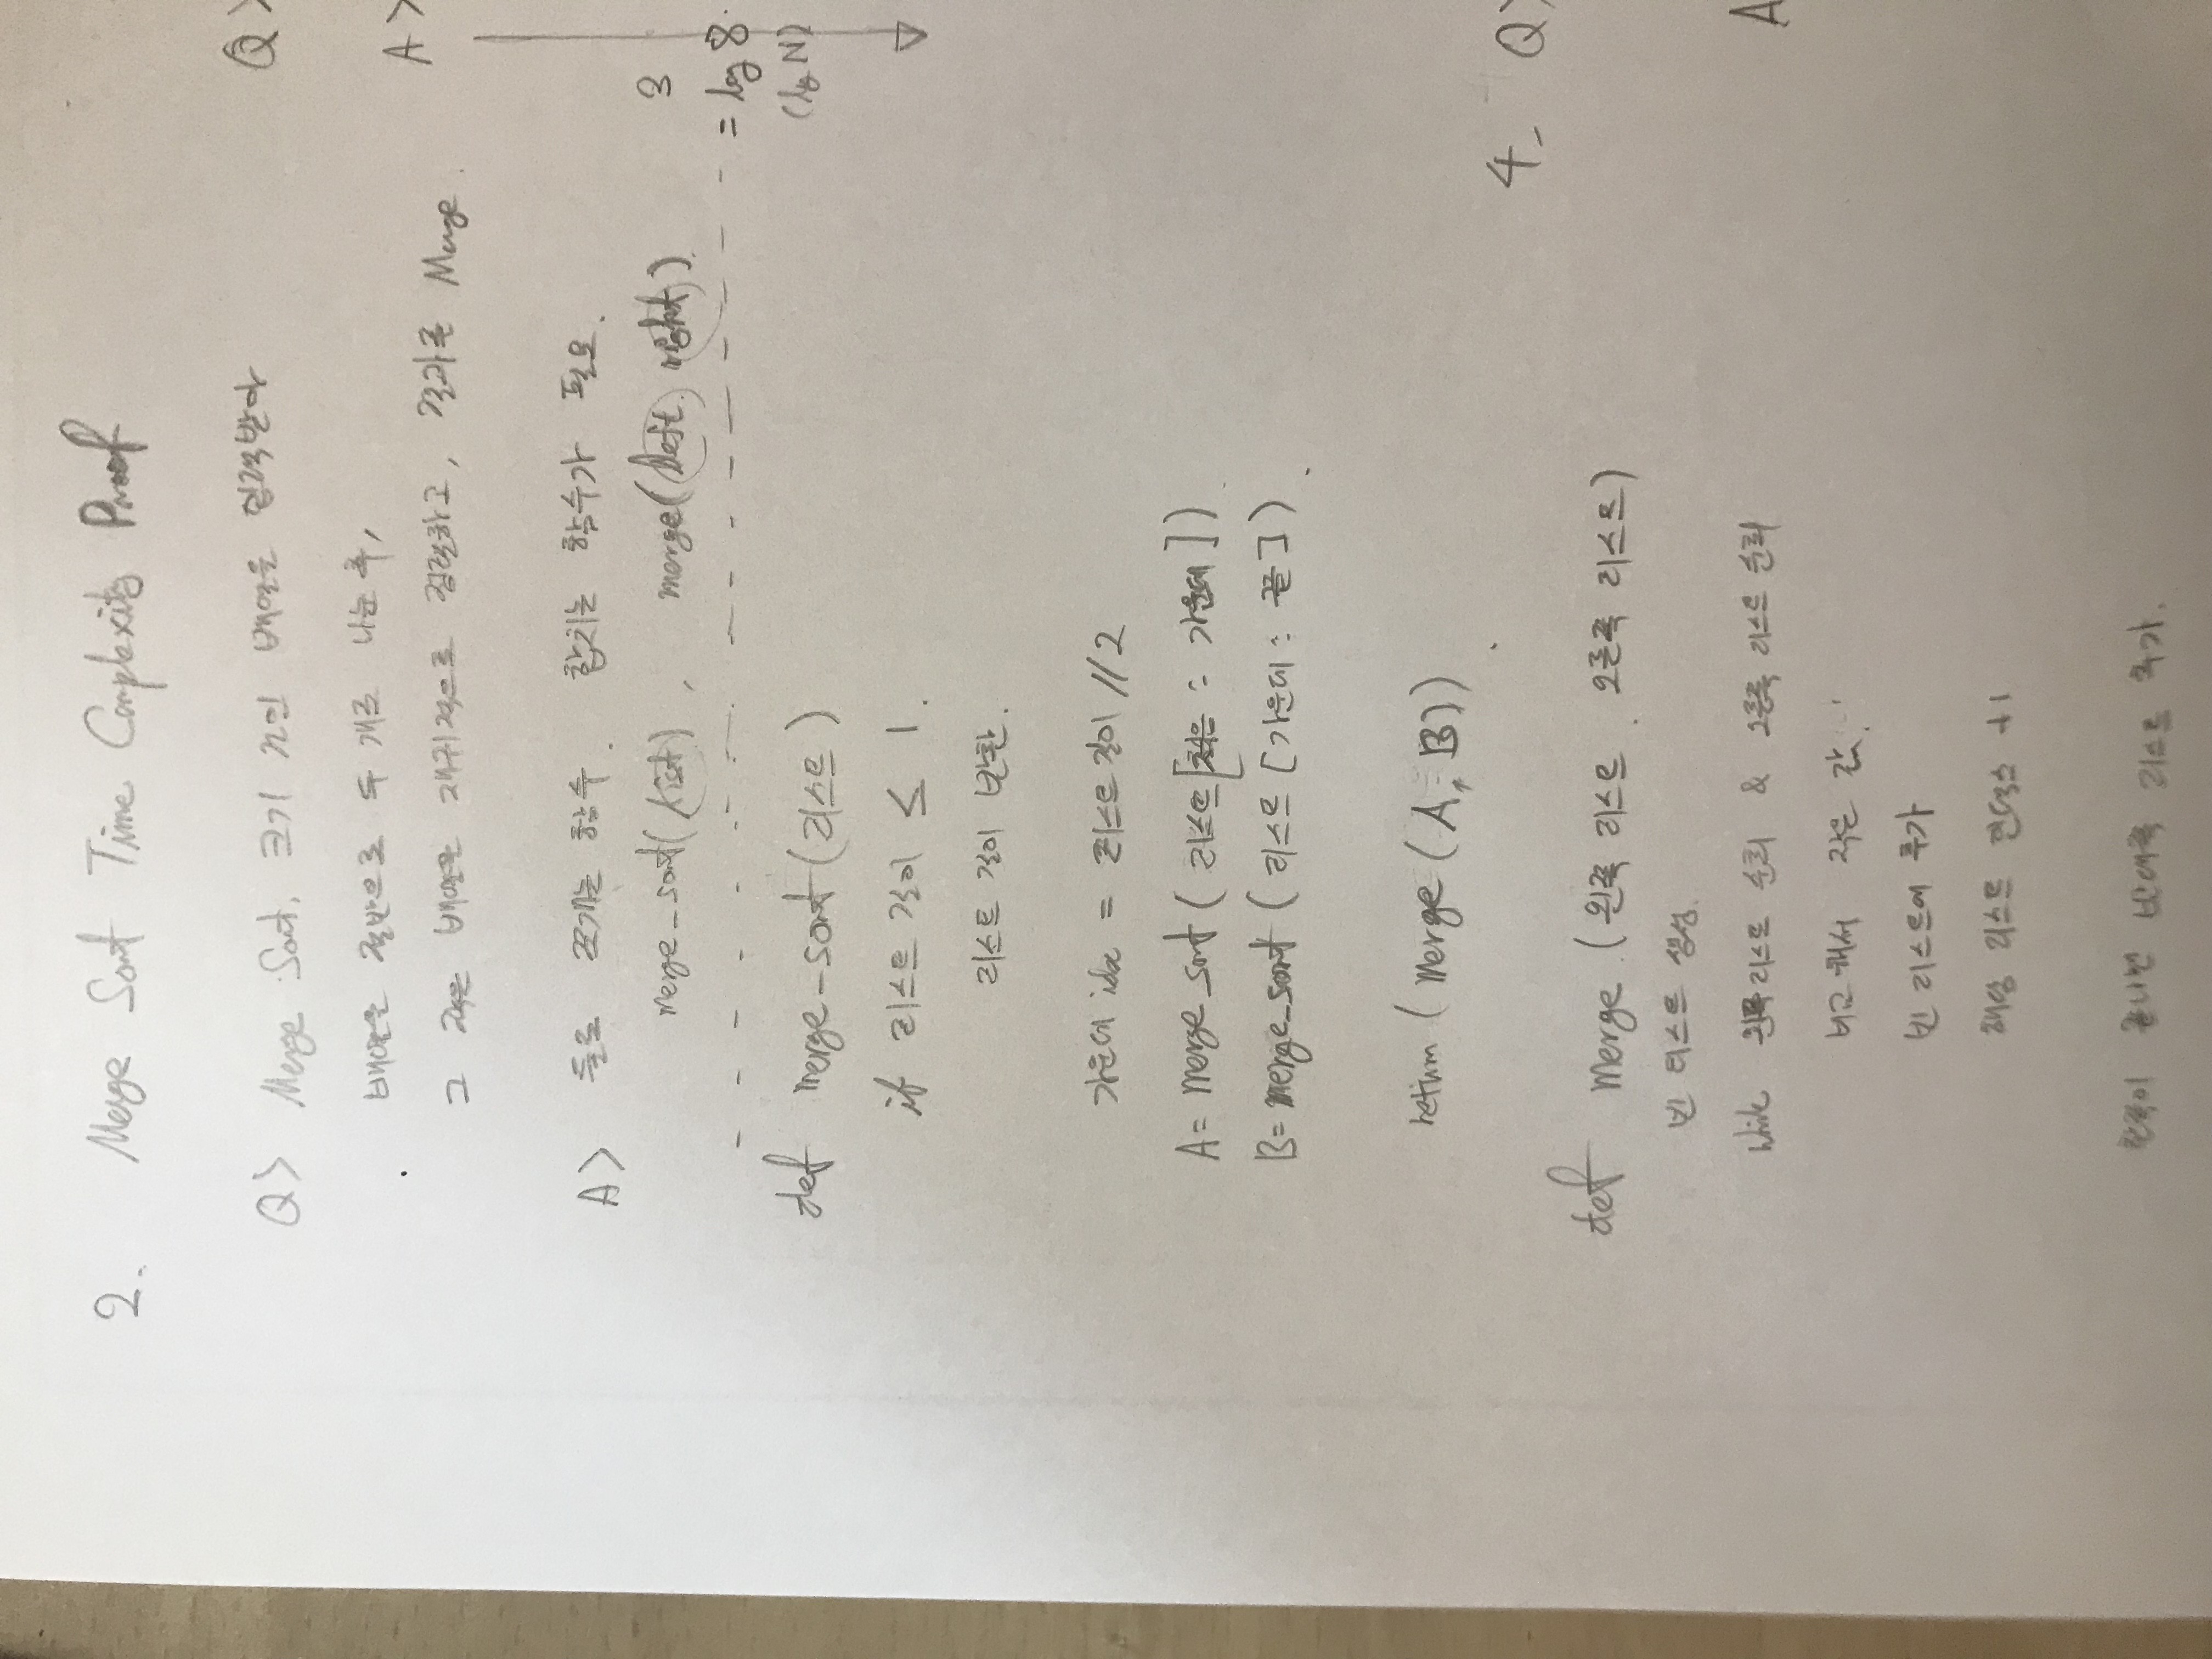 2. Merge Sort Time Complexity Proof
Q> Merge Sort, 크기 n의 배열을 입력받아
배열을 절반으로 두 개로 나눈 후,
그 작은 배열을 재귀적으로 정렬하고, 결과를 Merge.
A> 둘로 쪼개는 함수. 합치는 함수가 필요.
merge_sort(list), merge(left. right).
def merge_sort(리스트)
if 리스트 길이 ≤ 1.
리스트 길이 반환.
가운데 idx = 리스트 길이 // 2
A = merge_sort ( 리스트[처음 : 가운데])
B = merge_sort ( 리스트 [가운데 : 끝])
return ( merge ( A, B))
def merge (왼쪽 리스트. 오른쪽 리스트)
빈 리스트 생성.
while 왼쪽 리스트 순회 & 오른쪽 리스트 순회
비교해서 작은 값.
빈 리스트에 추가
해당 리스트 인덱스 +1
한쪽이 끝나면 반대쪽 리스트 추가.
Q>
A>
3
= log 8
(log N)
4. Q>
A